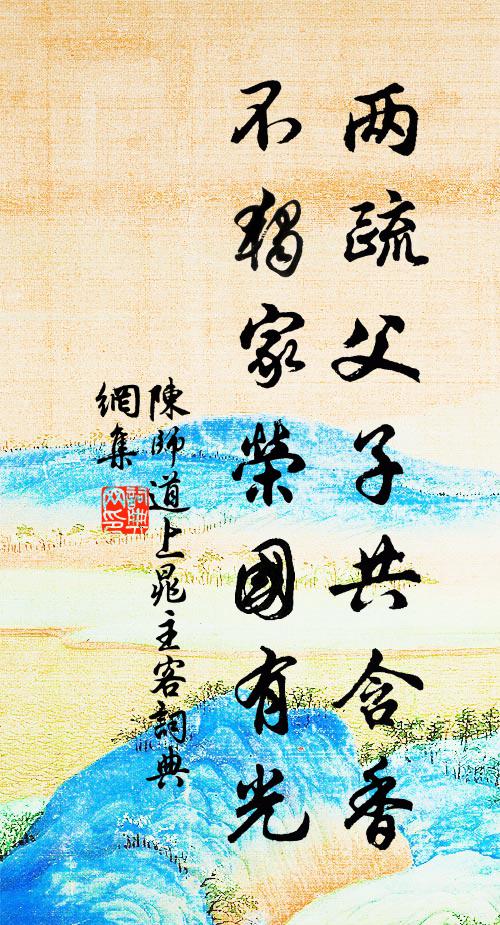 两疏父子共含香
不独家榮國有光
陳師道上晁主客詞典
網集
詞典
网印